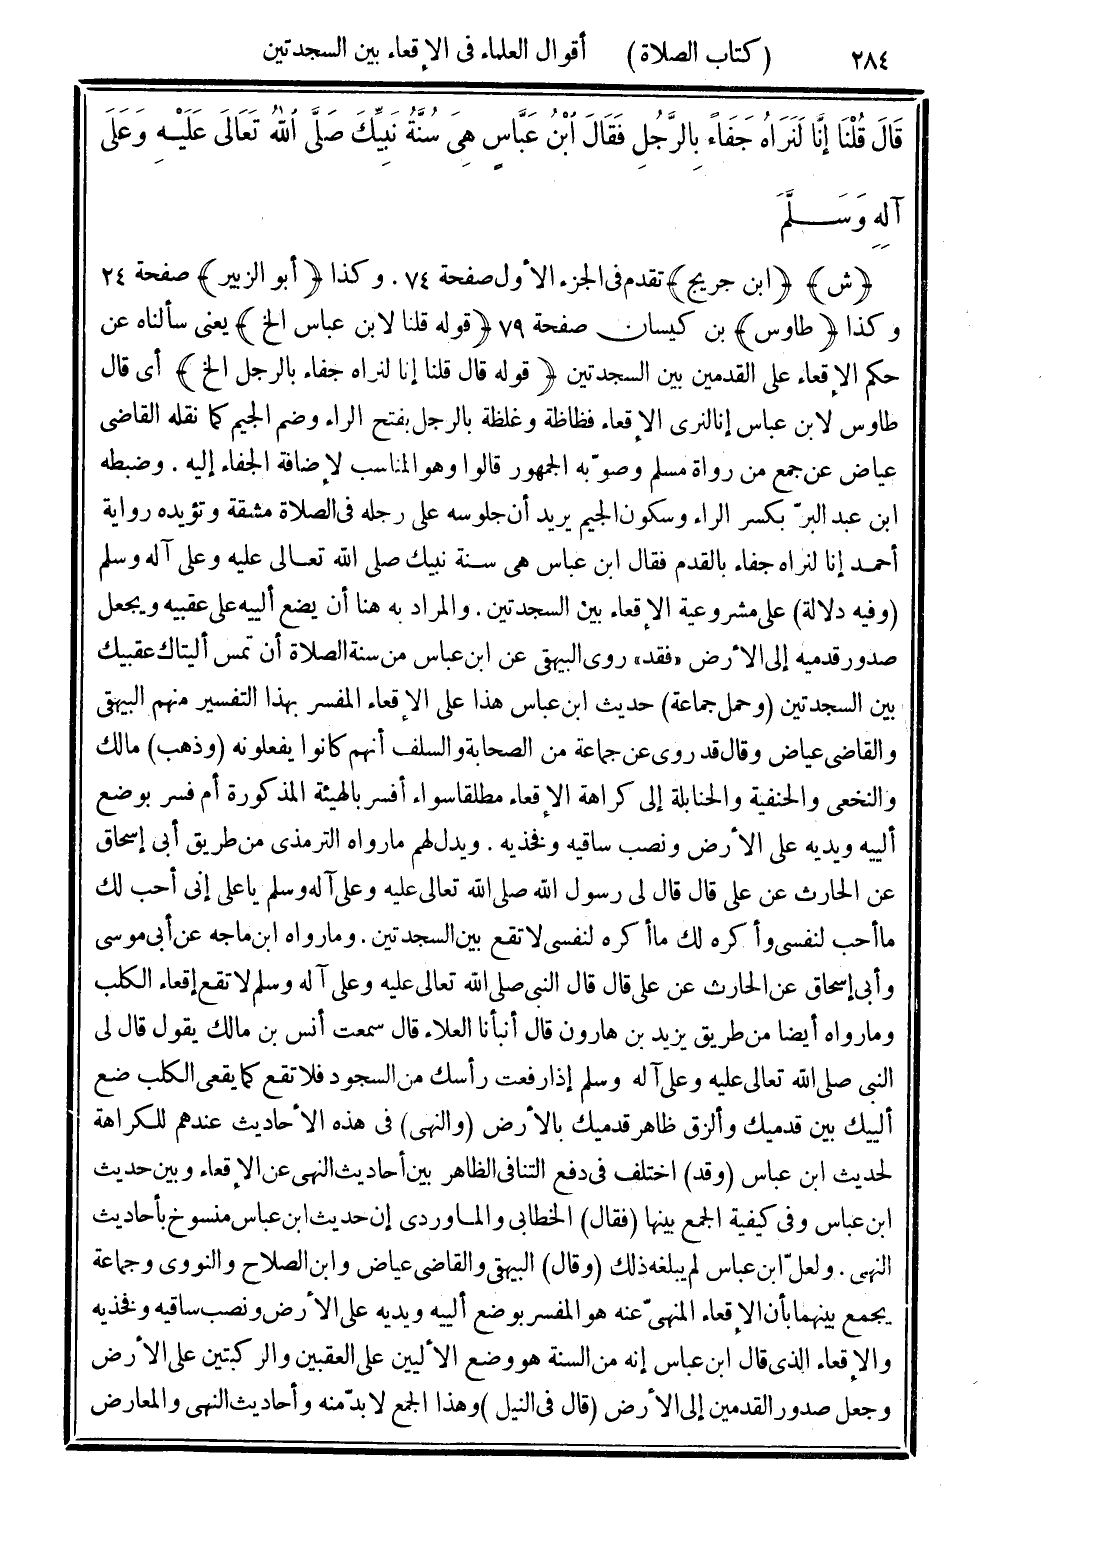 ٢٨٤ (كتاب الصلاة) أقوال العلماء فى الإقعاء بين السجدتين
قَالَ قُلْنَا إِنَّا لَنَرَاهُ جَفَاءً بِالرَّجُلِ فَقَالَ ابْنُ عَبَّاسٍ هِىَ سُنَّةُ نَبِيِّكَ صَلَّى اللهُ تَعَالَى عَلَيْهِ وَعَلَى
آلِهِ وَسَلَّمَ
﴿ش﴾ ﴿ابن جريج﴾ تقدم فى الجزء الأول صفحة ٧٤ . وكذا ﴿أبو الزبير﴾ صفحة ٢٤
وكذا ﴿طاوس﴾ بن كيسان صفحة ٧٩ ﴿قوله قلنا لابن عباس الخ﴾ يعنى سألناه عن
حكم الإقعاء على القدمين بين السجدتين ﴿قوله قال قلنا إنا لنراه جفاء بالرجل الخ﴾ أى قال
طاوس لابن عباس إنا لنرى الإقعاء فظاظة وغلظة بالرجل بفتح الراء وضم الجيم كما نقله القاضى
عياض عن جمع من رواة مسلم وصوّبه الجمهور قالوا وهو المناسب لإضافة الجفاء إليه . وضبطه
ابن عبد البرّ بكسر الراء وسكون الجيم يريد أن جلوسه على رجله فى الصلاة مشقة وتؤيده رواية
أحمد إنا لنراه جفاء بالقدم فقال ابن عباس هى سنة نبيك صلى الله تعالى عليه وعلى آله وسلم
(وفيه دلالة) على مشروعية الإقعاء بين السجدتين . والمراد به هنا أن يضع ألييه على عقبيه ويجعل
صدور قدميه إلى الأرض «فقد» روى البيهقى عن ابن عباس من سنة الصلاة أن تمس أليتاك عقبيك
بين السجدتين (وحمل جماعة) حديث ابن عباس هذا على الإقعاء المفسر بهذا التفسير منهم البيهقى
والقاضى عياض وقال قد روى عن جماعة من الصحابة والسلف أنهم كانوا يفعلونه (وذهب) مالك
والنخعى والحنفية والحنابلة إلى كراهة الإقعاء مطلقا سواء أفسر بالهيئة المذكورة أم فسر بوضع
ألييه ويديه على الأرض ونصب ساقيه وفخذيه . ويدل لهم مارواه الترمذى من طريق أبى إسحاق
عن الحارث عن على قال قال لى رسول الله صلى الله تعالى عليه وعلى آله وسلم ياعلى إنى أحب لك
ما أحب لنفسى وأكره لك ما أكره لنفسى لا تقع بين السجدتين . ومارواه ابن ماجه عن أبى موسى
وأبى إسحاق عن الحارث عن على قال قال النبى صلى الله تعالى عليه وعلى آله وسلم لا تقع إقعاء الكلب
ومارواه أيضا من طريق يزيد بن هارون قال أنبأنا العلاء قال سمعت أنس بن مالك يقول قال لى
النبى صلى الله تعالى عليه وعلى آله وسلم إذا رفعت رأسك من السجود فلا تقع كما يقعى الكلب ضع
ألييك بين قدميك وألزق ظاهر قدميك بالأرض (والنهى) فى هذه الأحاديث عندهم للكراهة
لحديث ابن عباس (وقد) اختلف فى دفع التنافى الظاهر بين أحاديث النهى عن الإقعاء وبين حديث
ابن عباس وفى كيفية الجمع بينها (فقال) الخطابى والماوردى إن حديث ابن عباس منسوخ بأحاديث
النهى . ولعلّ ابن عباس لم يبلغه ذلك (وقال) البيهقى والقاضى عياض وابن الصلاح والنووى وجماعة
يجمع بينهما بأن الإقعاء المنهىّ عنه هو المفسر بوضع ألييه ويديه على الأرض ونصب ساقيه وفخذيه
والإقعاء الذى قال ابن عباس إنه من السنة هو وضع الأليين على العقبين والركبتين على الأرض
وجعل صدور القدمين إلى الأرض (قال فى النيل) وهذا الجمع لابدّ منه وأحاديث النهى والمعارض